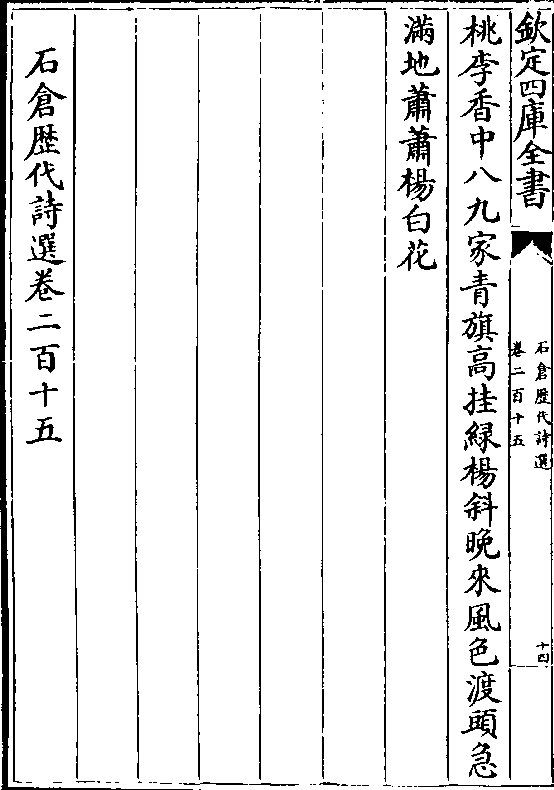 欽定四庫全書
石倉歴代詩選
卷二百十五
十四
桃李香中八九家青旗高挂緑楊斜晚來風色渡頭急
滿地蕭蕭楊白花
石倉歴代詩選卷二百十五